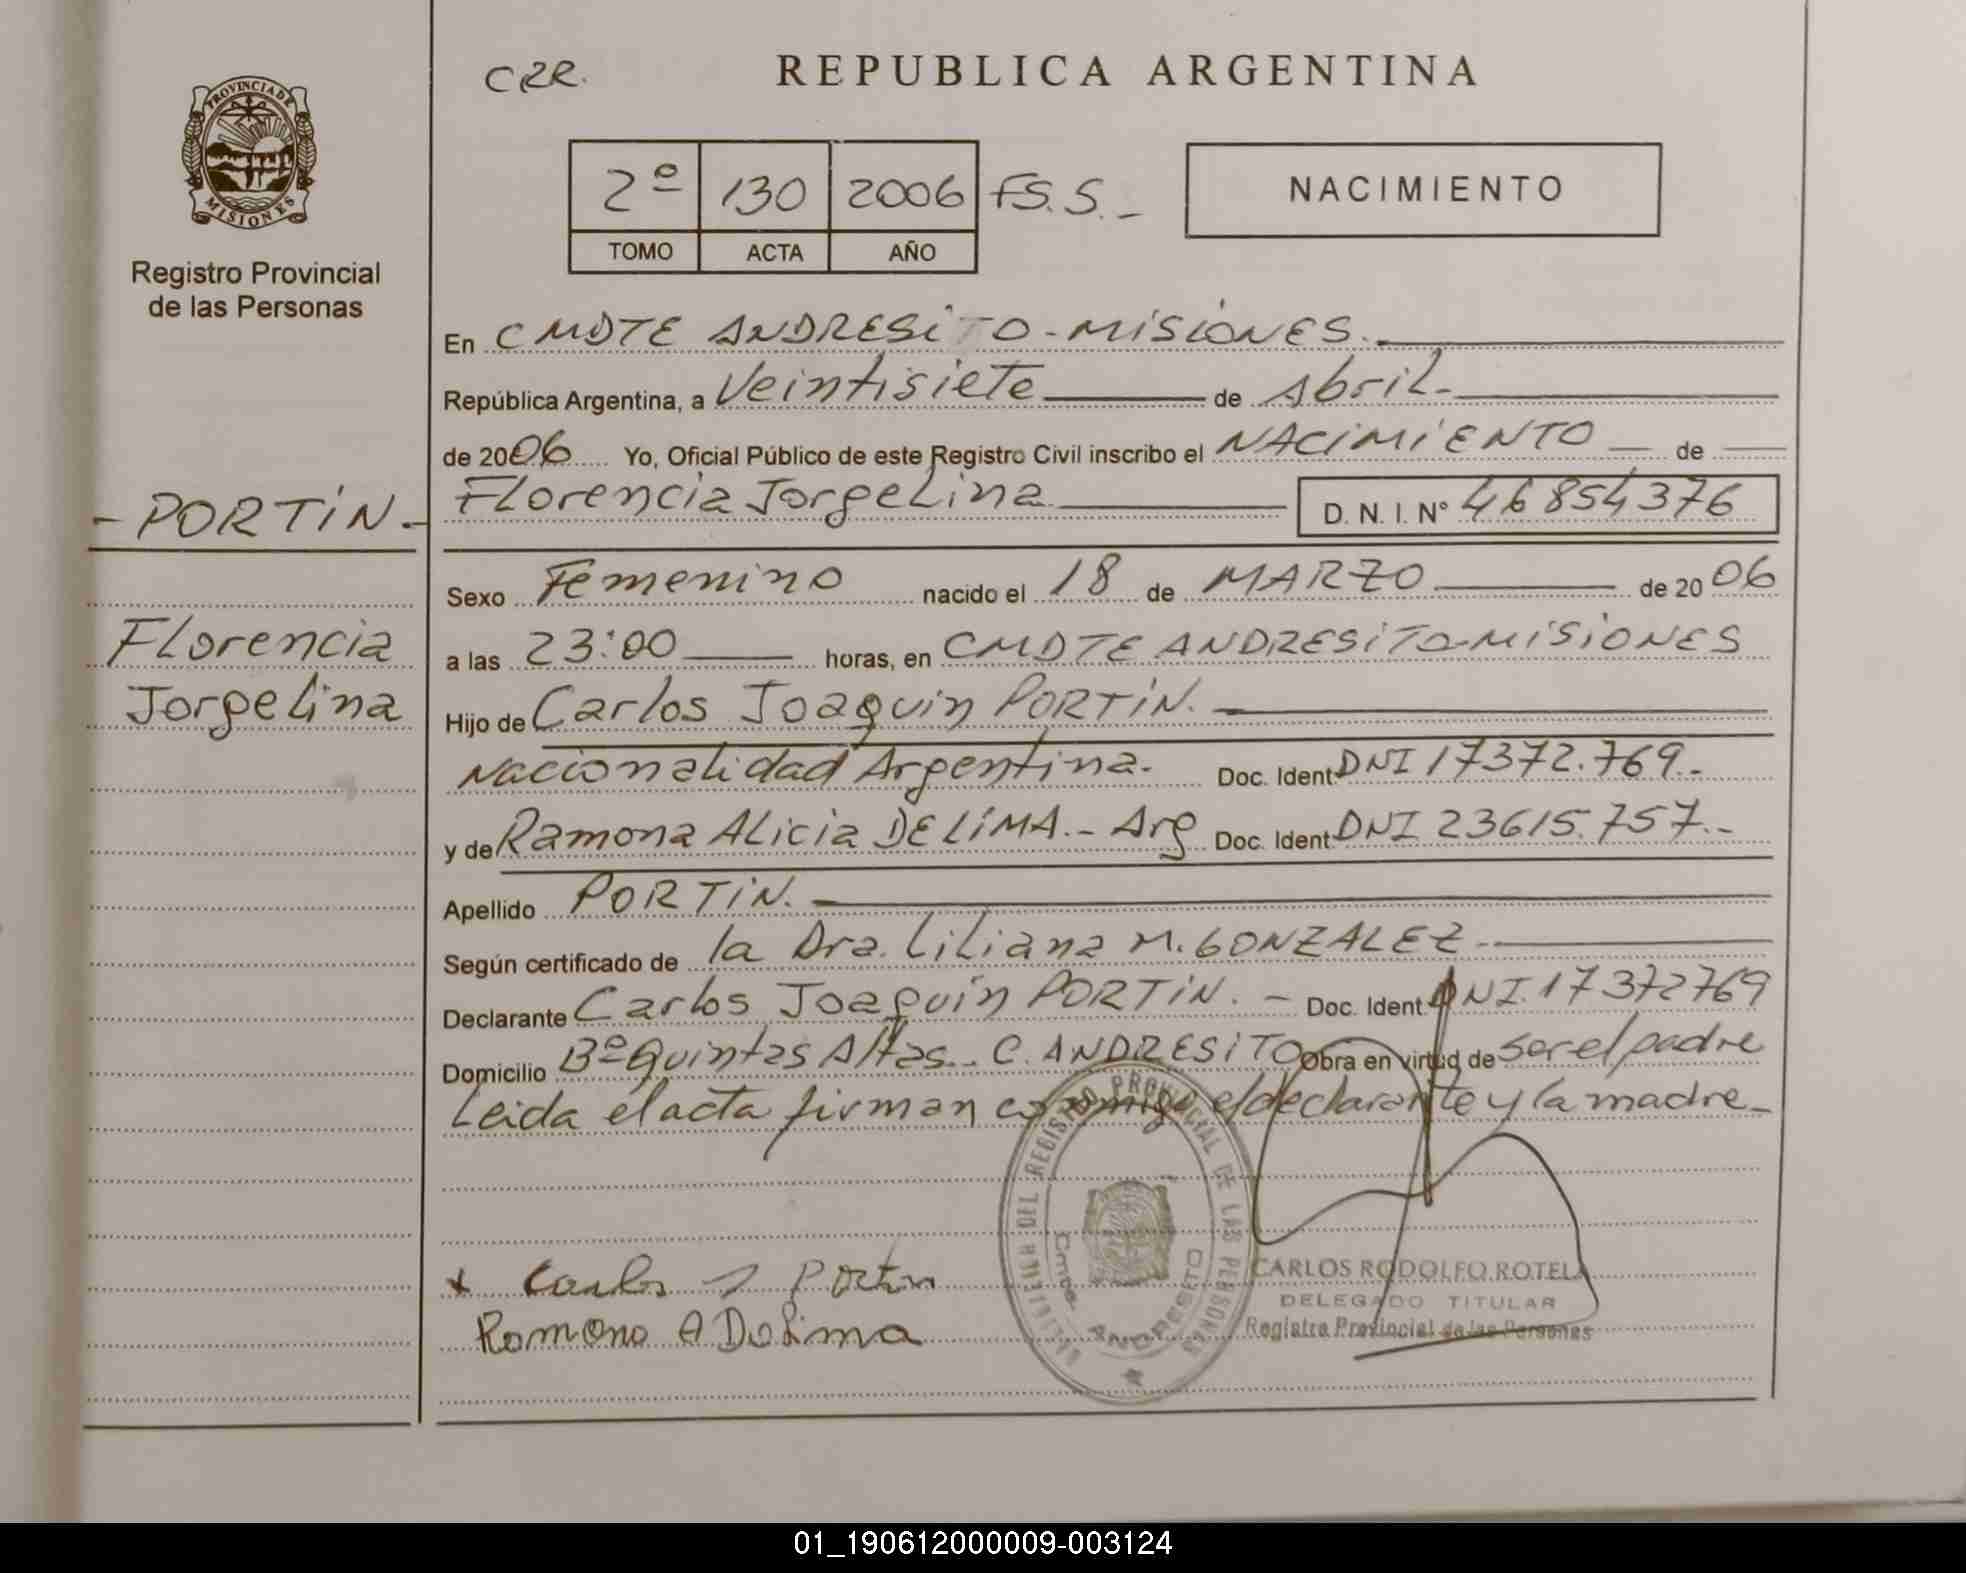 PROVINCIA DE
MISIONES
Registro Provincial
de las Personas
- PORTIN -
Florencia
Jorgelina
CRR.
REPUBLICA ARGENTINA
2º 130 2006 FS. S. -
TOMO ACTA AÑO
NACIMIENTO
En CMDTE ANDRESITO - MISIONES.
República Argentina, a Veintisiete de Abril -
de 2006 Yo, Oficial Público de este Registro Civil inscribo el NACIMIENTO de
Florencia Jorgelina D. N. I. Nº 46854376
Sexo Femenino nacido el 18 de MARZO de 2006
a las 23:00 horas, en CMDTE ANDRESITO-MISIONES
Hijo de Carlos Joaquin PORTIN.
Nacionalidad Argentina. Doc. Ident. DNI 17372.769.-
y de Ramona Alicia DE LIMA.- Arg Doc. Ident. DNI 23615.757.-
Apellido PORTIN.
Según certificado de la Dra. Liliana M. GONZALEZ -
Declarante Carlos Joaquin PORTIN. - Doc. Ident. DNI. 17372769
Domicilio Bº Quintas Altas.. C. ANDRESITO Obra en virtud de ser el padre
Leida el acta firman conmigo el declarante y la madre -
DEL REGISTRO PROVINCIAL DE LAS PERSONAS
Cmte. ANDRESITO
x Carlos J Portin
Ramona A De Lima
CARLOS RODOLFO ROTELA
DELEGADO TITULAR
Registro Provincial de las Personas
01_190612000009-003124